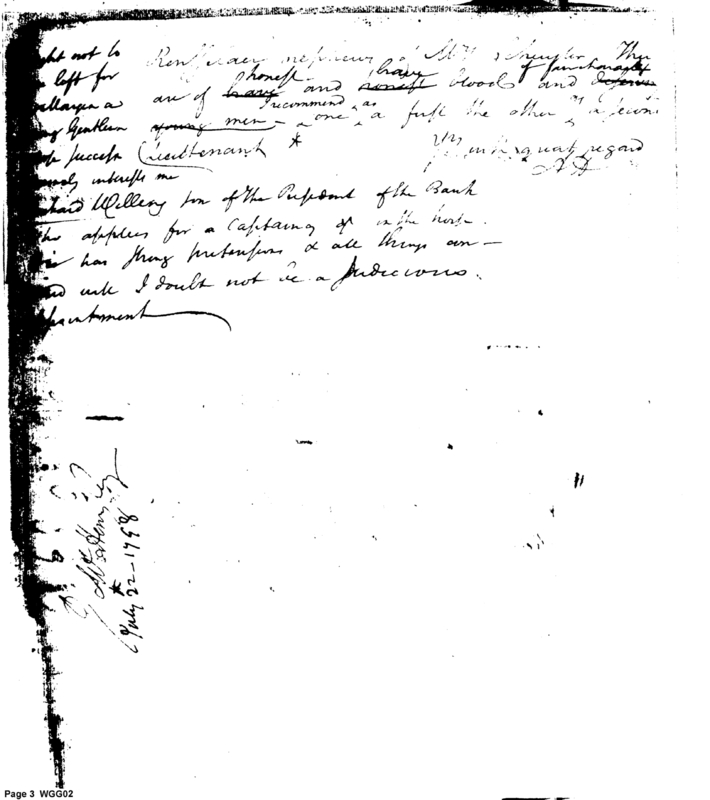 Rensselaer nephews of Mrs Schuyler They
honest brave of fair character
are of brave and honest blood and
recommend as
young men one a first the other as a second
Lieutenant *
with great regard
A H
ght not to
left for
a
Gentlem
success
interests me
hard Willing son of the President of the Bank
applies for a Captaincy in the horse
has strong pretensions & all things con-
ed will I doubt not be a Judicious
pointment
*
July 22 - 1798
Page 3 WGG02